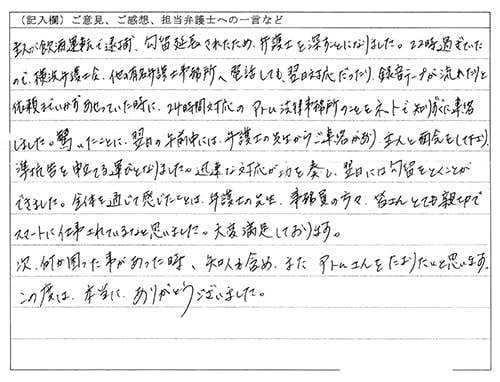 （記入欄）ご意見、ご感想、担当弁護士への一言など
主人が飲酒運転で逮捕、勾留延長されたため、弁護士を探すことになりました。22時過ぎていた
ので、横浜弁護士会、他の有名弁護士事務所へ電話しても、翌日対応だったり、録音テープが流れたりと
依頼まで いかず あせっていた時に、24時間対応の アトム法律事務所のことをネットで知り すぐに電話
しました。驚いたことに、翌日の午前中には、弁護士の先生からご電話があり、主人と面会をして下さり、
準抗告を申立てる運びとなりました。迅速な対応が功を奏し、翌日には勾留をとくことが
できました。全体を通じて感じたことは、弁護士の先生、事務員の方々、皆さん とても親切で
スマートに仕事されているなと思いました。大変満足しております。
次、何か困った事があった時、知人も含め、また アトムさんを たよりたいと思います。
この度は、本当に、ありがとうございました。